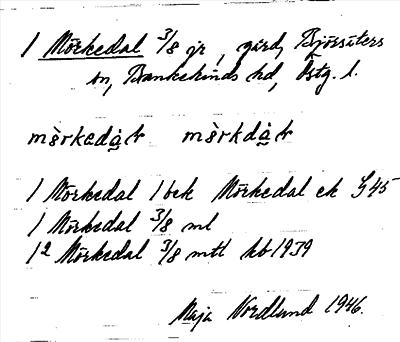 1 Mörkedal 3/8 jr, gård, Björsäters
sn, Bankekinds hd, Östg. l.
mörkadàḷ mörkdàḷ
1 Mörkedal 1 bek Mörkedal ek G45
1 Mörkedal 3/8 ml
1² Mörkedal 3/8 mtl kb 1939
Maja Nordlund 1946.